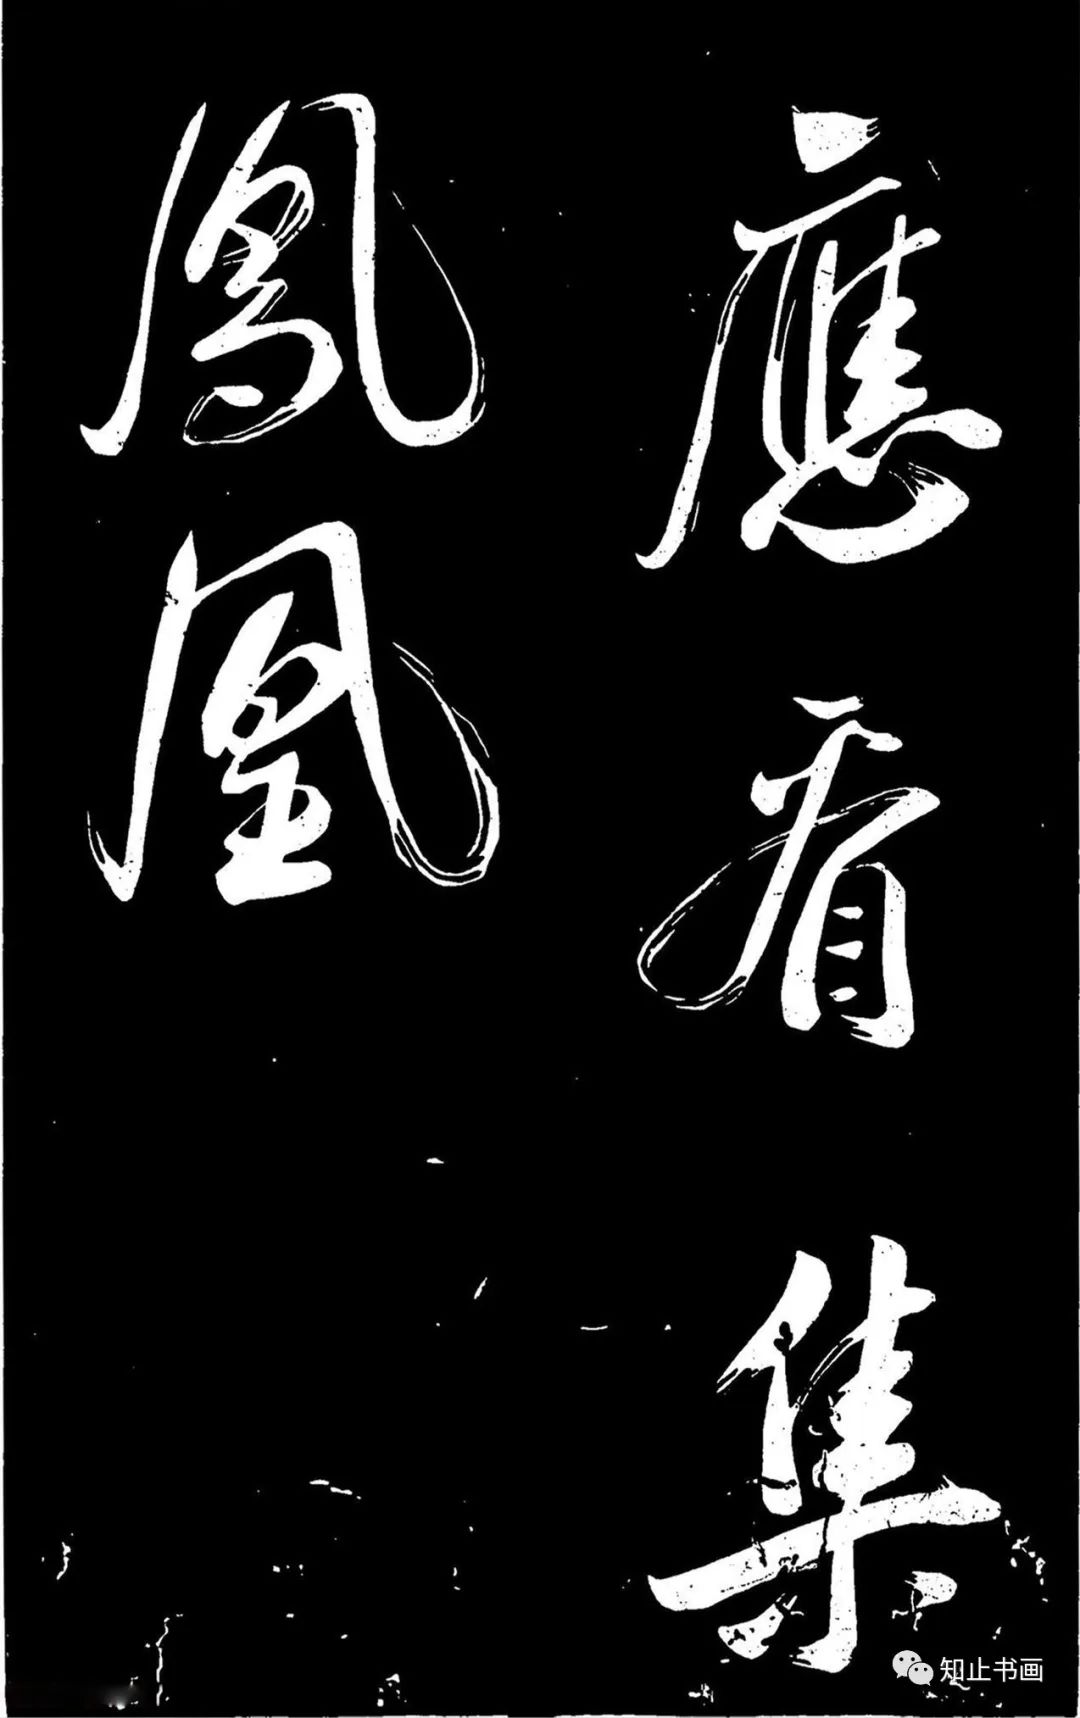 應看集
鳳凰
知止书画